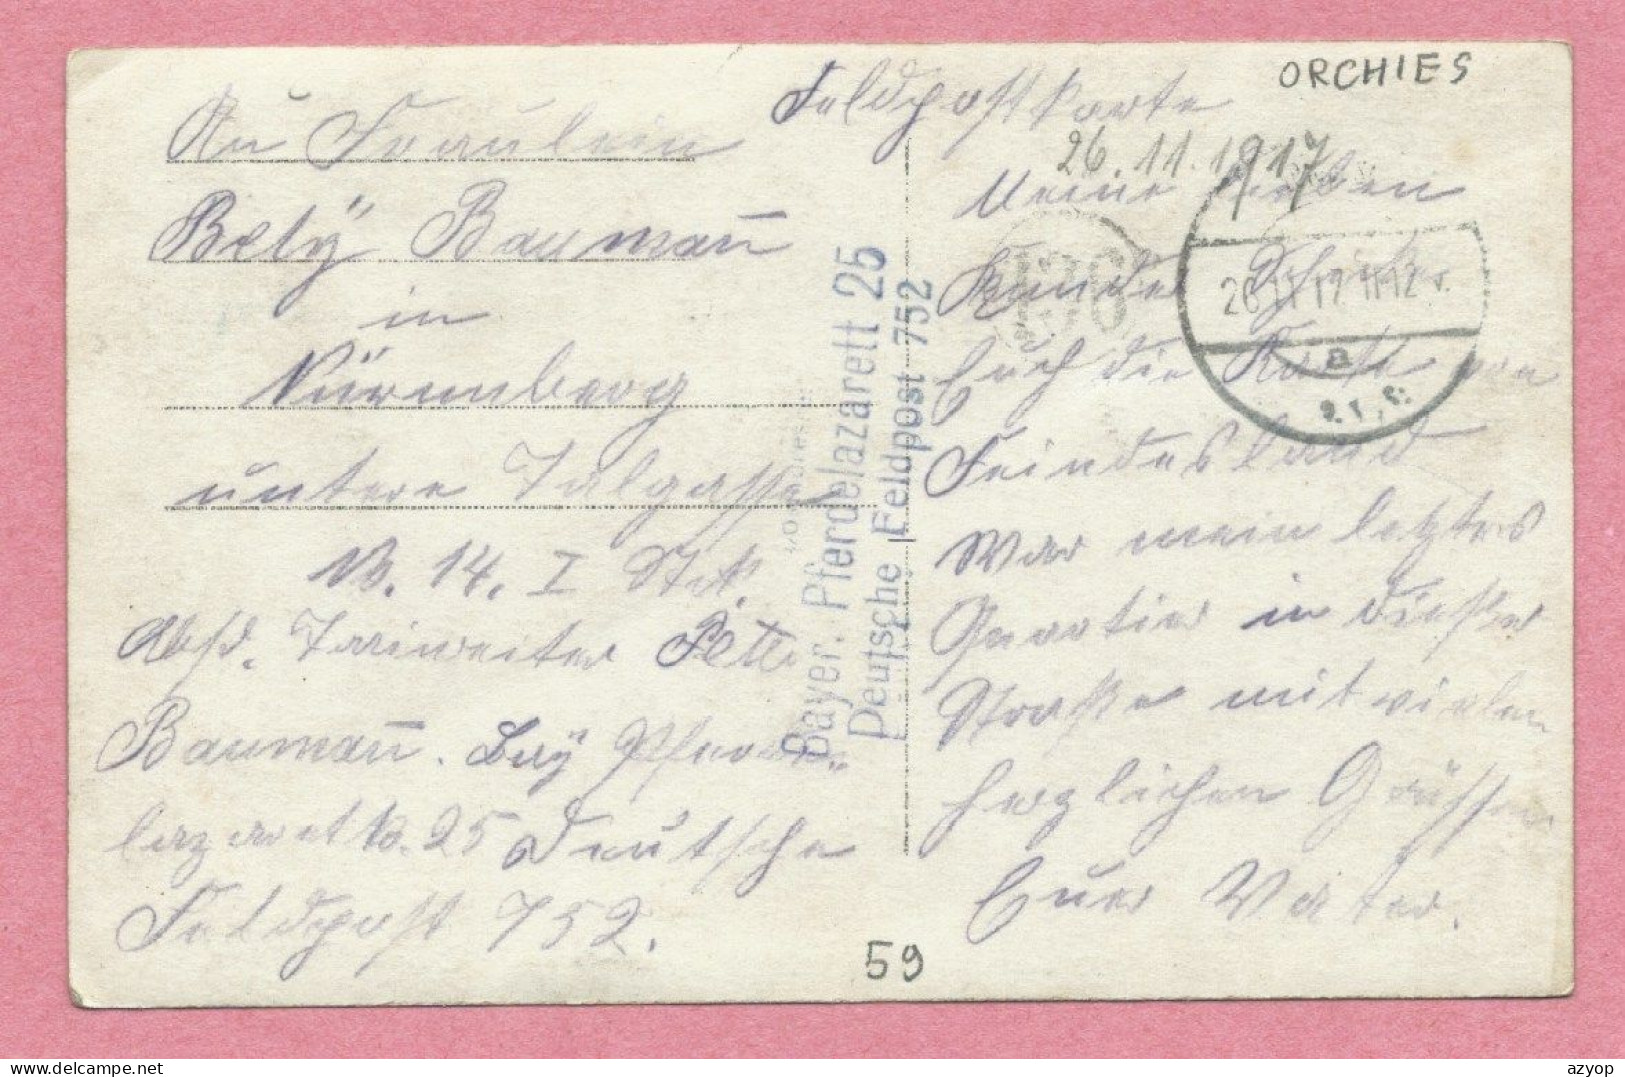 ORCHIES
Feldpostkarte
26.11.1917
An Fräulein
Bety Baumañ
in
Nürmberg
untere Talgasse
N. 14. I Stck.
Absd. Peter
Baumañ. Bay Pferde-
lazaret N. 25 Deutsche
Feldpost 752.
Bayer. Pferdelazarett 25
Deutsche Feldpost 752
26 11 17 11-12 v.
a
Meine lieben
Kinder Schicke
Euch die Karte von
Feindesland
War mein letztes
Quartier in dieser
Straße mit vielen
herzlichen Grüssen
Euer Vater.
59
azyop